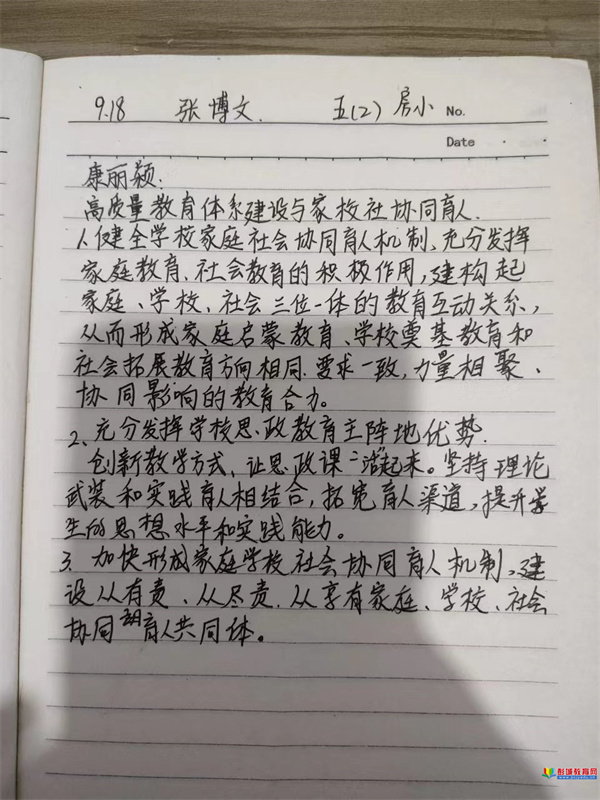 9.18 张博文. 五(2) 房小 No.
Date
康丽颖:
高质量教育体系建设与家校社协同育人.
1.健全学校家庭社会协同育人机制、充分发挥
家庭教育、社会教育的积极作用,建构起
家庭、学校、社会三位一体的教育互动关系,
从而形成家庭启蒙教育、学校奠基教育和
社会拓展教育方向相同、要求一致,力量相聚、
协同影响的教育合力。
2、充分发挥学校思政教育主阵地优势.
创新教学方式、让思政课“活”起来。坚持理论
武装和实践育人相结合,拓宽育人渠道,提升学
生的思想水平和实践能力。
3. 加快形成家庭学校社会协同育人机制,建
设人人有责、人人尽责、人人享有家庭、学校、社会
协同育人共同体。
彭城教育网